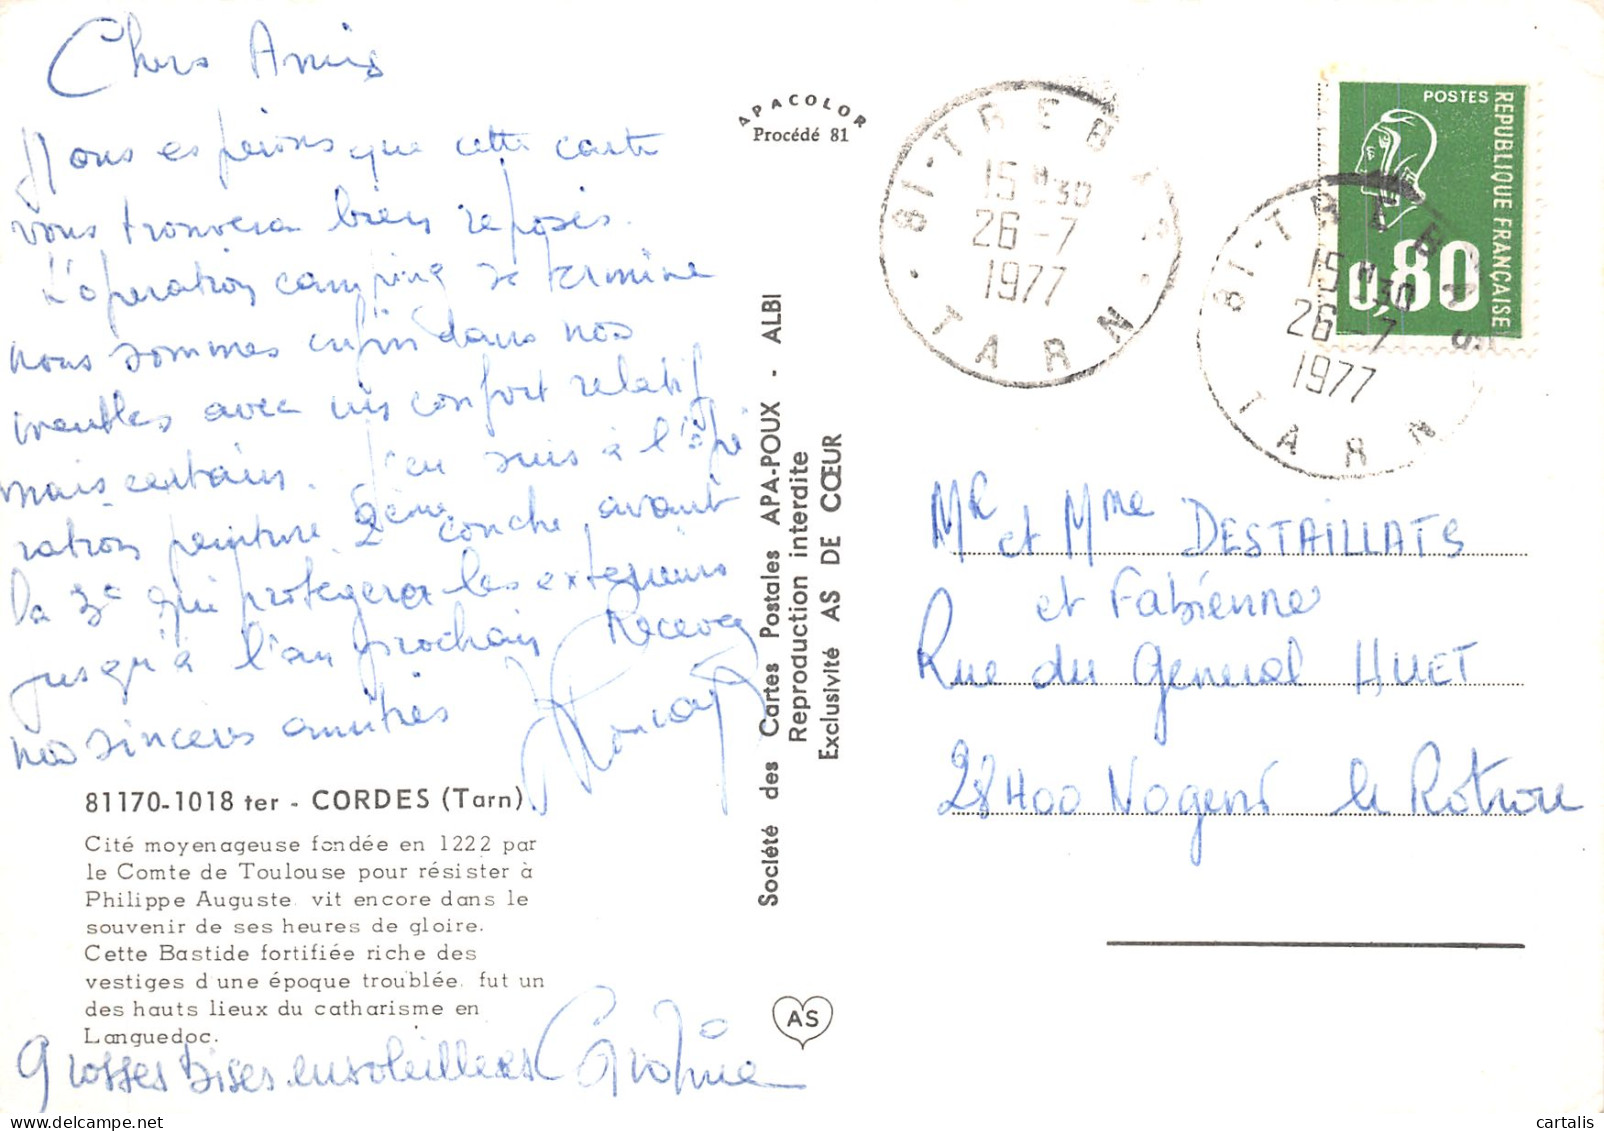 Chers Amis
Nous espérions que cette carte
vous trouvera bien reposés.
L'opération camping se termine
nous sommes enfin dans nos
meubles avec un confort relatif
mais certain. J'en suis à l'opé
ration peinture 2ème couche avant
la 3e qui protegera les exterieurs
jusqu'à l'an prochain Recevez
nos sincères amitiés
81170-1018 ter - CORDES (Tarn)
Cité moyenageuse fondée en 1222 par
le Comte de Toulouse pour résister à
Philippe Auguste, vit encore dans le
souvenir de ses heures de gloire.
Cette Bastide fortifiée riche des
vestiges d'une époque troublée, fut un
des hauts lieux du catharisme en
Languedoc.
Grosses bises ensoleillées
APACOLOR
Procédé 81
Société des Cartes Postales APA-POUX - ALBI
Reproduction interdite
Exclusivité AS DE CŒUR
AS
81-TREBAS
15H30
26-7
1977
TARN
POSTES
REPUBLIQUE FRANÇAISE
0,80
81-TREBAS
15H30
26-7
1977
TARN
Mr et Mme DESTAILLATS
et Fabienne
Rue du General HUET
28400 Nogent le Rotrou
cartalis
www.delcampe.net